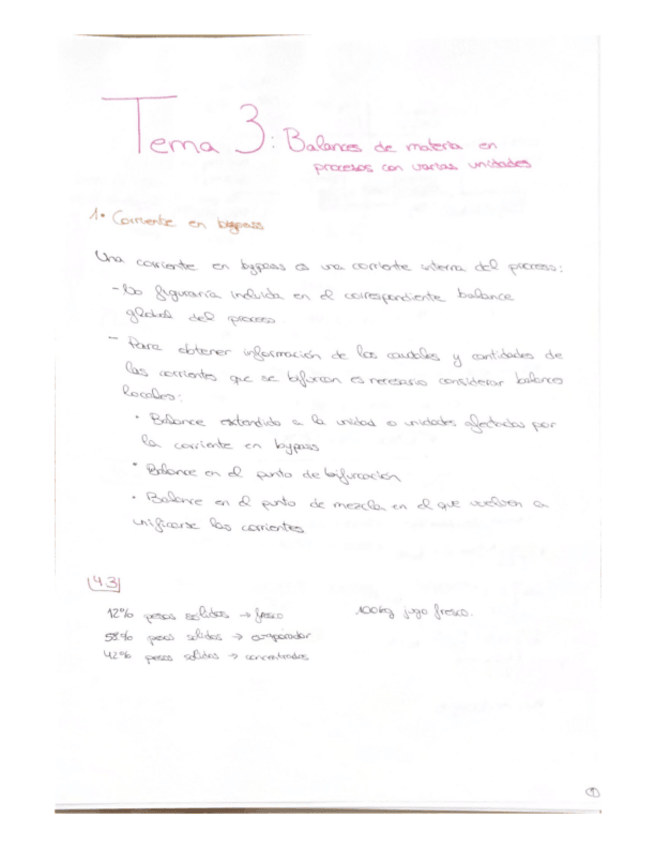 Tema 3: Balances de materia en
procesos con varias unidades
1. Corriente en bypass
Una corriente en bypass es una corriente interna del proceso:
- No figuraría incluida en el correspondiente balance
global del proceso
- Para obtener información de los caudales y cantidades de
las corrientes que se bifurcan es necesario considerar balances
locales:
· Balance extendido a la unidad o unidades afectadas por
la corriente en bypass
· Balance en el punto de bifurcación
· Balance en el punto de mezcla en el que vuelven a
unificarse las corrientes
4.3
12% pesos solidos → fresco 100kg jugo fresco.
58% pesos solidos → evaporador
42% pesos solidos → concentrados
1